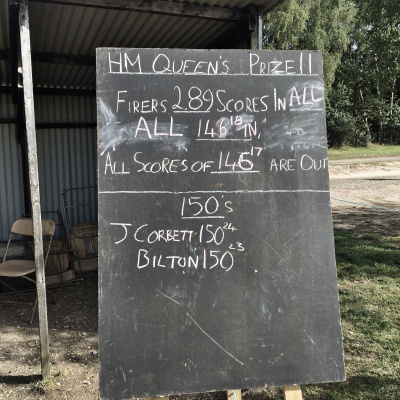 HM QUEEN'S PRIZE II
FIRERS 289 SCORES IN ALL
ALL 146¹⁸ IN,
ALL SCORES OF 146¹⁷ ARE OUT
150'S
J CORBETT 150²⁴
BILTON 150²³